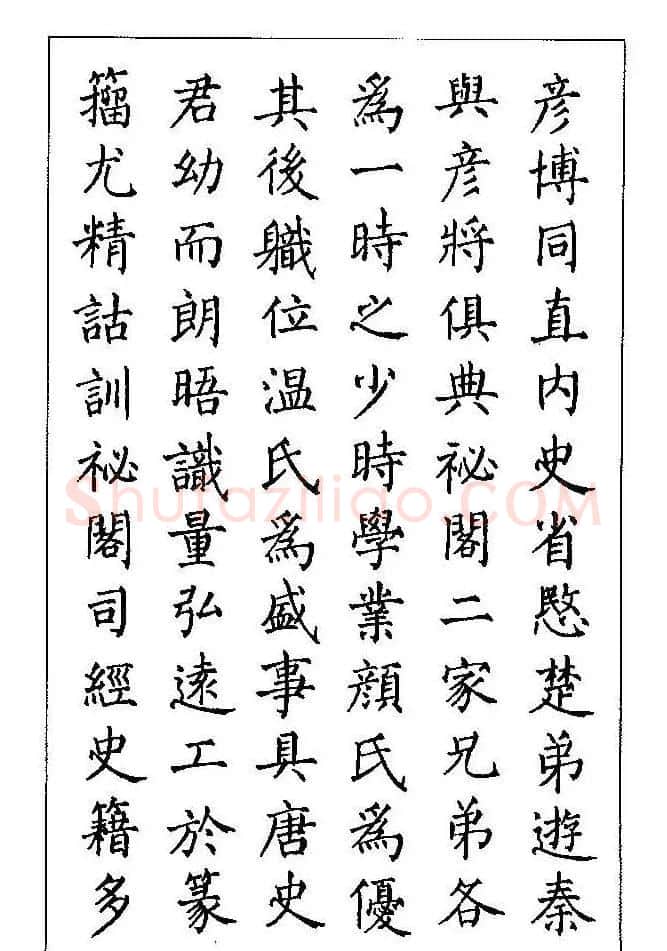 彦博同直内史省愍楚弟遊秦
與彦將俱典祕閣二家兄弟各
爲一時之少時學業顔氏爲優
其後職位温氏爲盛事具唐史
君幼而朗晤識量弘遠工於篆
籀尤精詁訓祕閣司經史籍多
Shufaziliao.COM